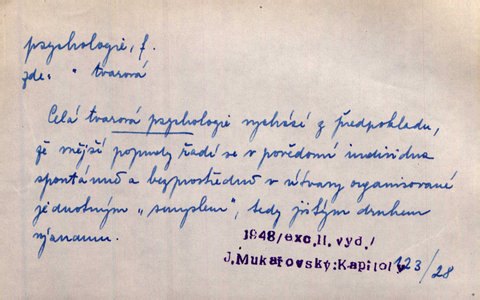 psychologie, f.
zde: " tvarová
Celá tvarová psychologie vychází z předpokladu,
že vnější popudy řadí se v povědomí individua
spontánně a bezprostředně v útvary organisované
jednotným „smyslem“, tedy jistým druhem
významu.
1948/exc.II.vyd./
J.Mukařovský:Kapitoly 123/28